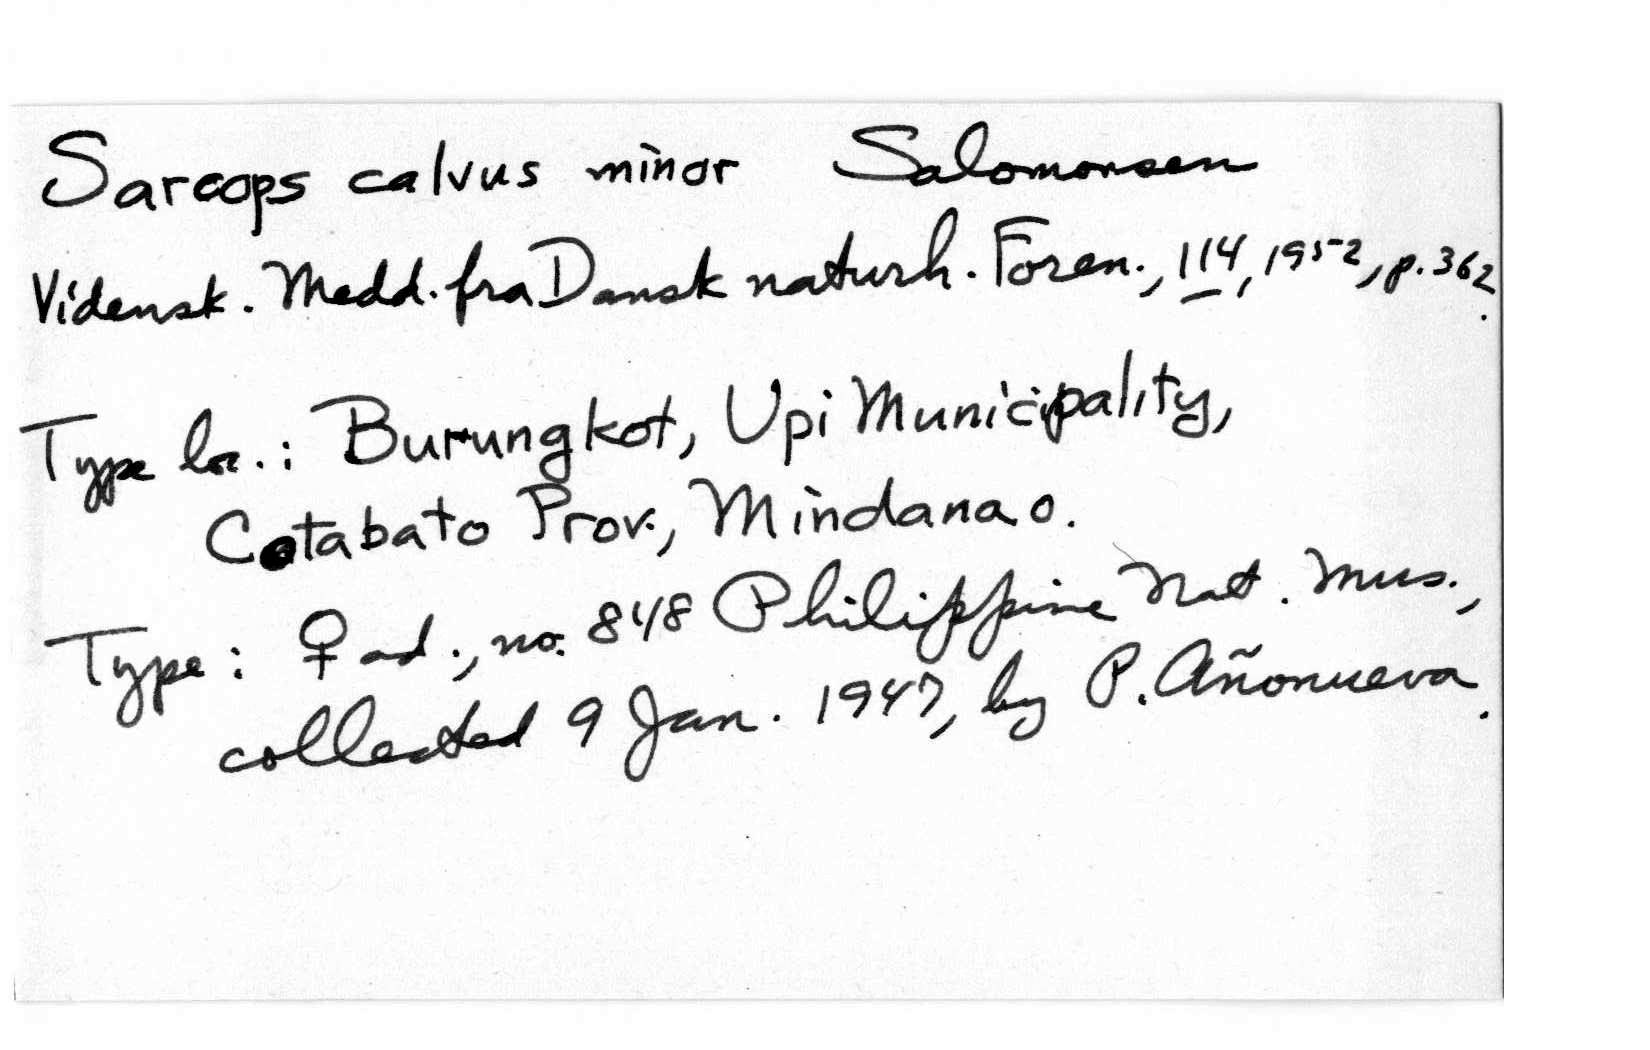 Sarcops calvus minor Salomonsen
Vidensk. Medd. fra Dansk naturh. Foren., 114, 1952, p. 362.
Type loc.: Burungkot, Upi Municipality,
Cotabato Prov., Mindanao.
Type: ♀ ad., no. 848 Philippine Nat. Mus.,
collected 9 Jan. 1947, by P. Añonueva.